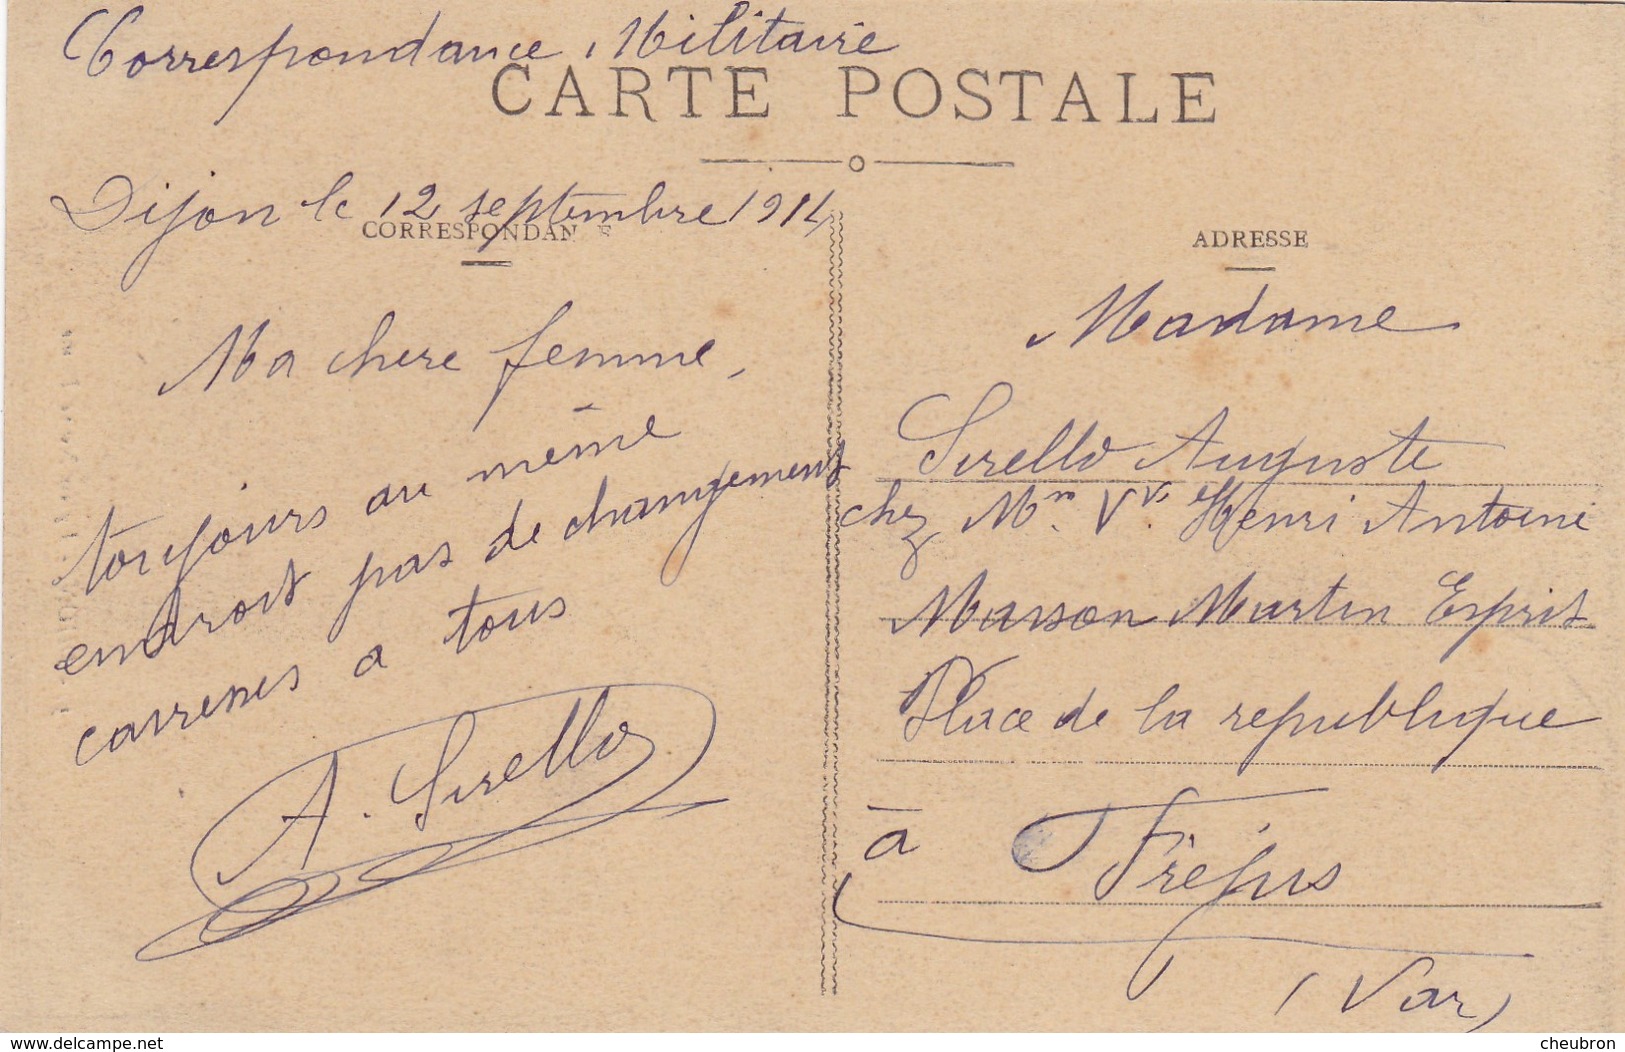 Correspondance Militaire
CARTE POSTALE
Dijon le 12 septembre 1914
CORRESPONDAN E
Ma chere femme,
toujours au même
endroit pas de changement
carresses a tous
A. Sirello
ADRESSE
Madame
Sirello Auguste
chez Mm Vve Henri Antoine
Maison Martin Esprit
Place de la republique
à
Fréjus
(Var)
www.delcampe.net
cheubron